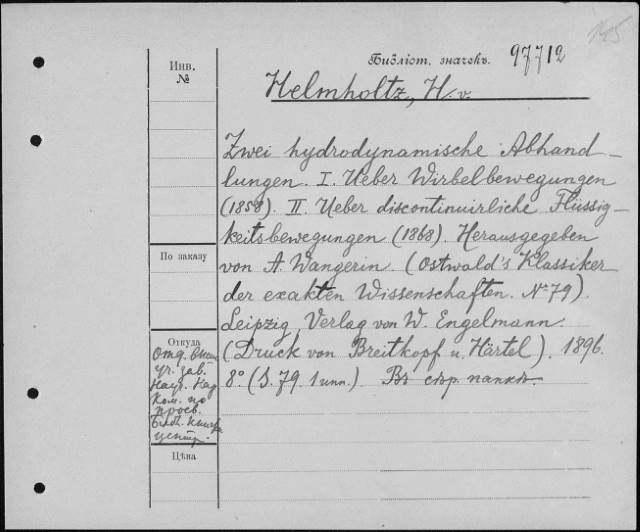 145
Библіот. значекъ. 97712
Инв.
№
Helmholtz, H. v.
Zwei hydrodynamische Abhand-
lungen. I. Ueber Wirbelbewegungen
(1858). II. Ueber discontinuirliche Flüssig-
keitsbewegungen (1868). Herausgegeben
von A. Wangerin. (Ostwald's Klassiker
der exakten Wissenschaften. № 79).
Leipzig, Verlag von W. Engelmann.
(Druck von Breitkopf u. Härtel). 1896.
8° (S. 79. 1 unn.). Въ сѣр. папкѣ.
По заказу
Откуда
Отд. Высш
уч. зав.
Науч. Нар
Ком. по
просв.
Библ. книгхр
центр.
Цѣна